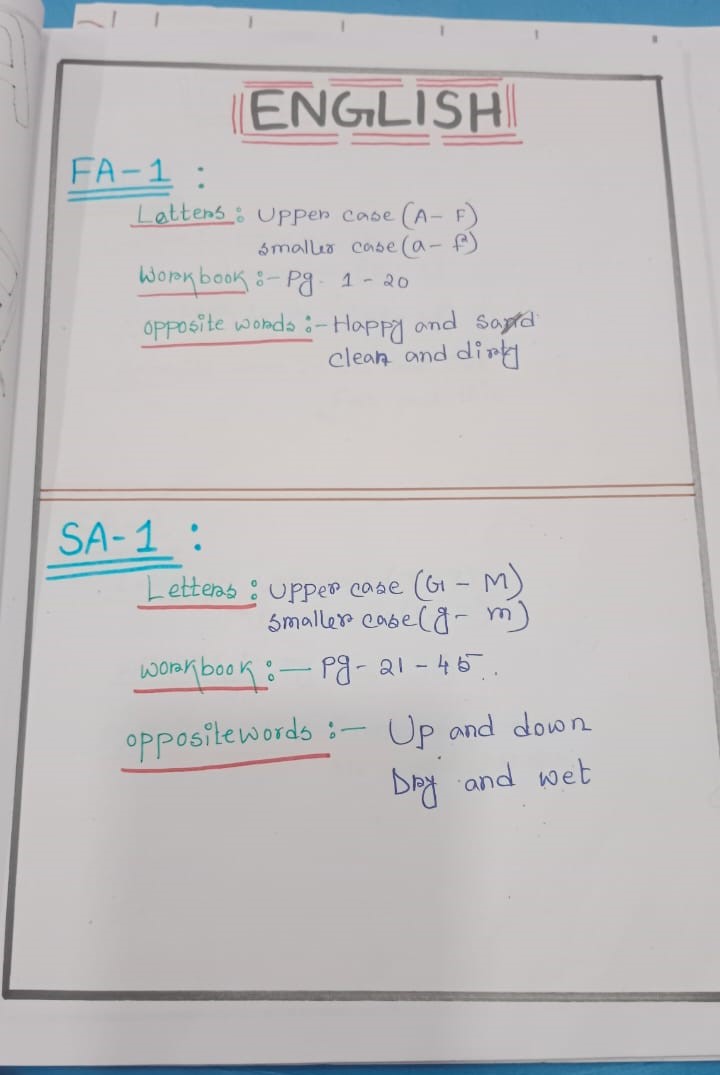 ENGLISH
FA-1 :
Letters : Upper case (A - F)
smaller case (a - f)
Workbook :- Pg. 1 - 20
opposite words :- Happy and sad
clean and dirty
SA-1 :
Letters : Upper case (G - M)
smaller case (g - m)
workbook :- Pg - 21 - 45
opposite words :- Up and down
Dry and wet